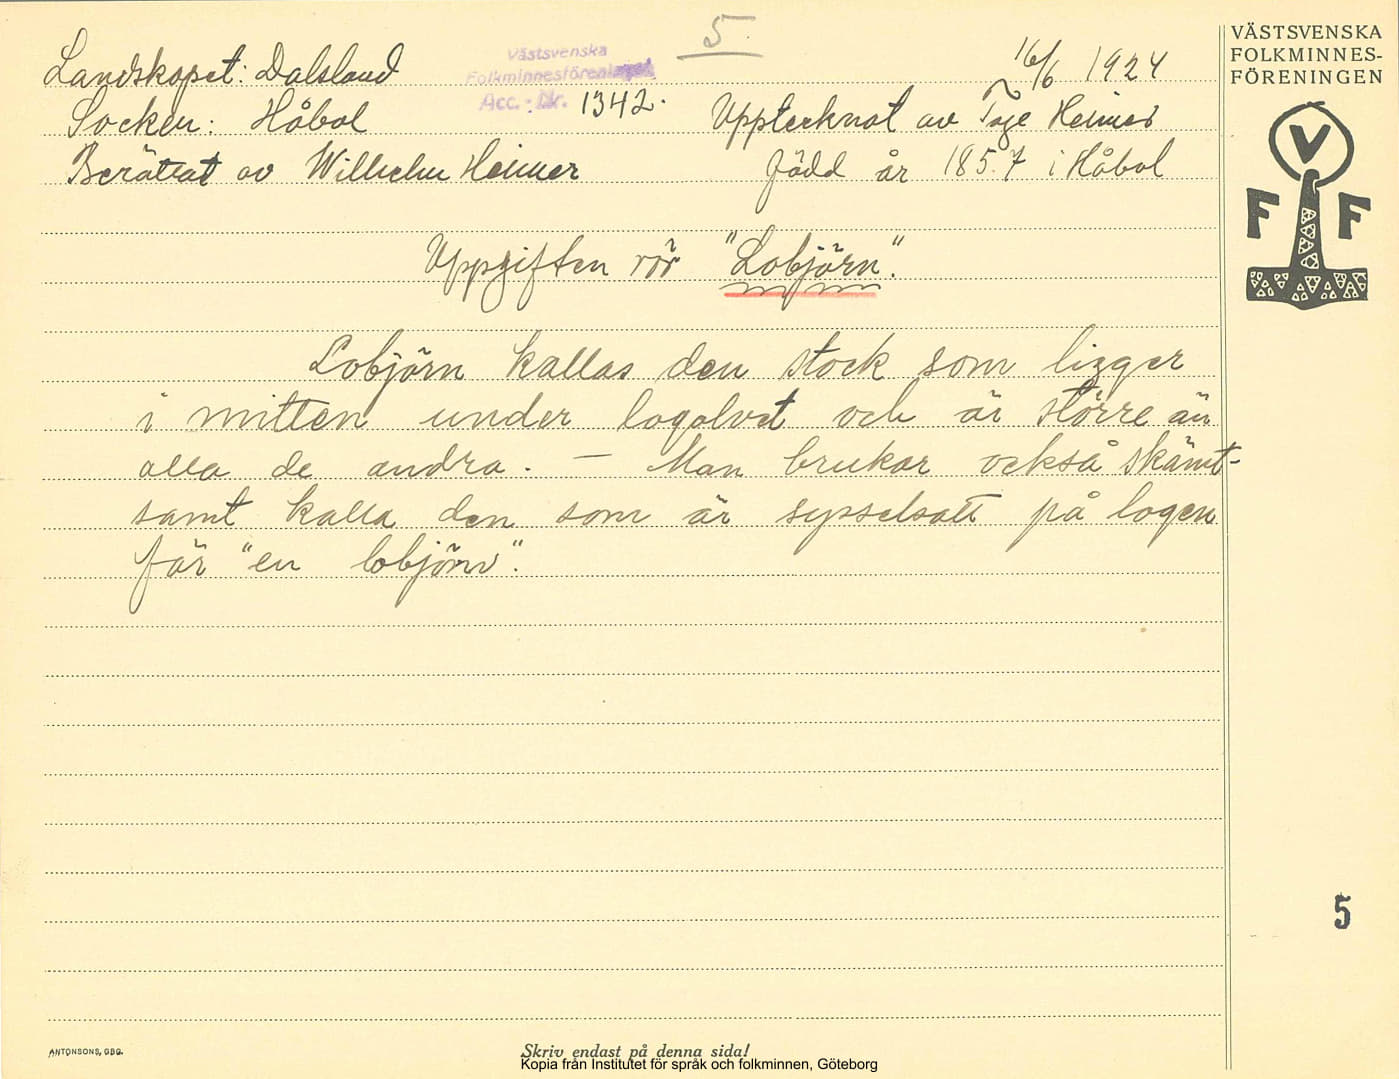 5.
Landskapet: Dalsland
Västsvenska
Folkminnesföreningen
Acc. Nr. 1342.
16/6 1924
Socken: Håbol
Upptecknat av Tage Heimer
Berättat av Wilhelm Heimer
född år 1857 i Håbol
Uppgiften rör "Lobjörn".
Lobjörn kallas den stock som ligger
i mitten under logolvet och är större än
alla de andra. — Man brukar också skämt-
samt kalla den som är sysselsatt på logen
för "en lobjörn".
VÄSTSVENSKA
FOLKMINNES-
FÖRENINGEN
V
F F
5
ANTONSONS, GBG.
Skriv endast på denna sida!
Kopia från Institutet för språk och folkminnen, Göteborg